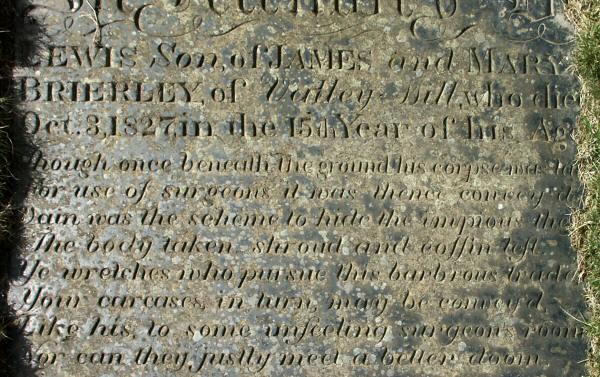 LEWIS Son, of JAMES and MARY
BRIERLEY, of Valley-Hill, who died
Oct. 3, 1827, in the 15th Year of his Age
Though once beneath the ground his corpse was laid
For use of surgeons it was thence convey'd
Vain was the scheme to hide the impious theft
The body taken, shroud and coffin left
Ye wretches who pursue this barbrous trade
Your carcases, in turn, may be convey'd
Like his, to some unfeeling surgeon's room
Nor can they justly meet a better doom